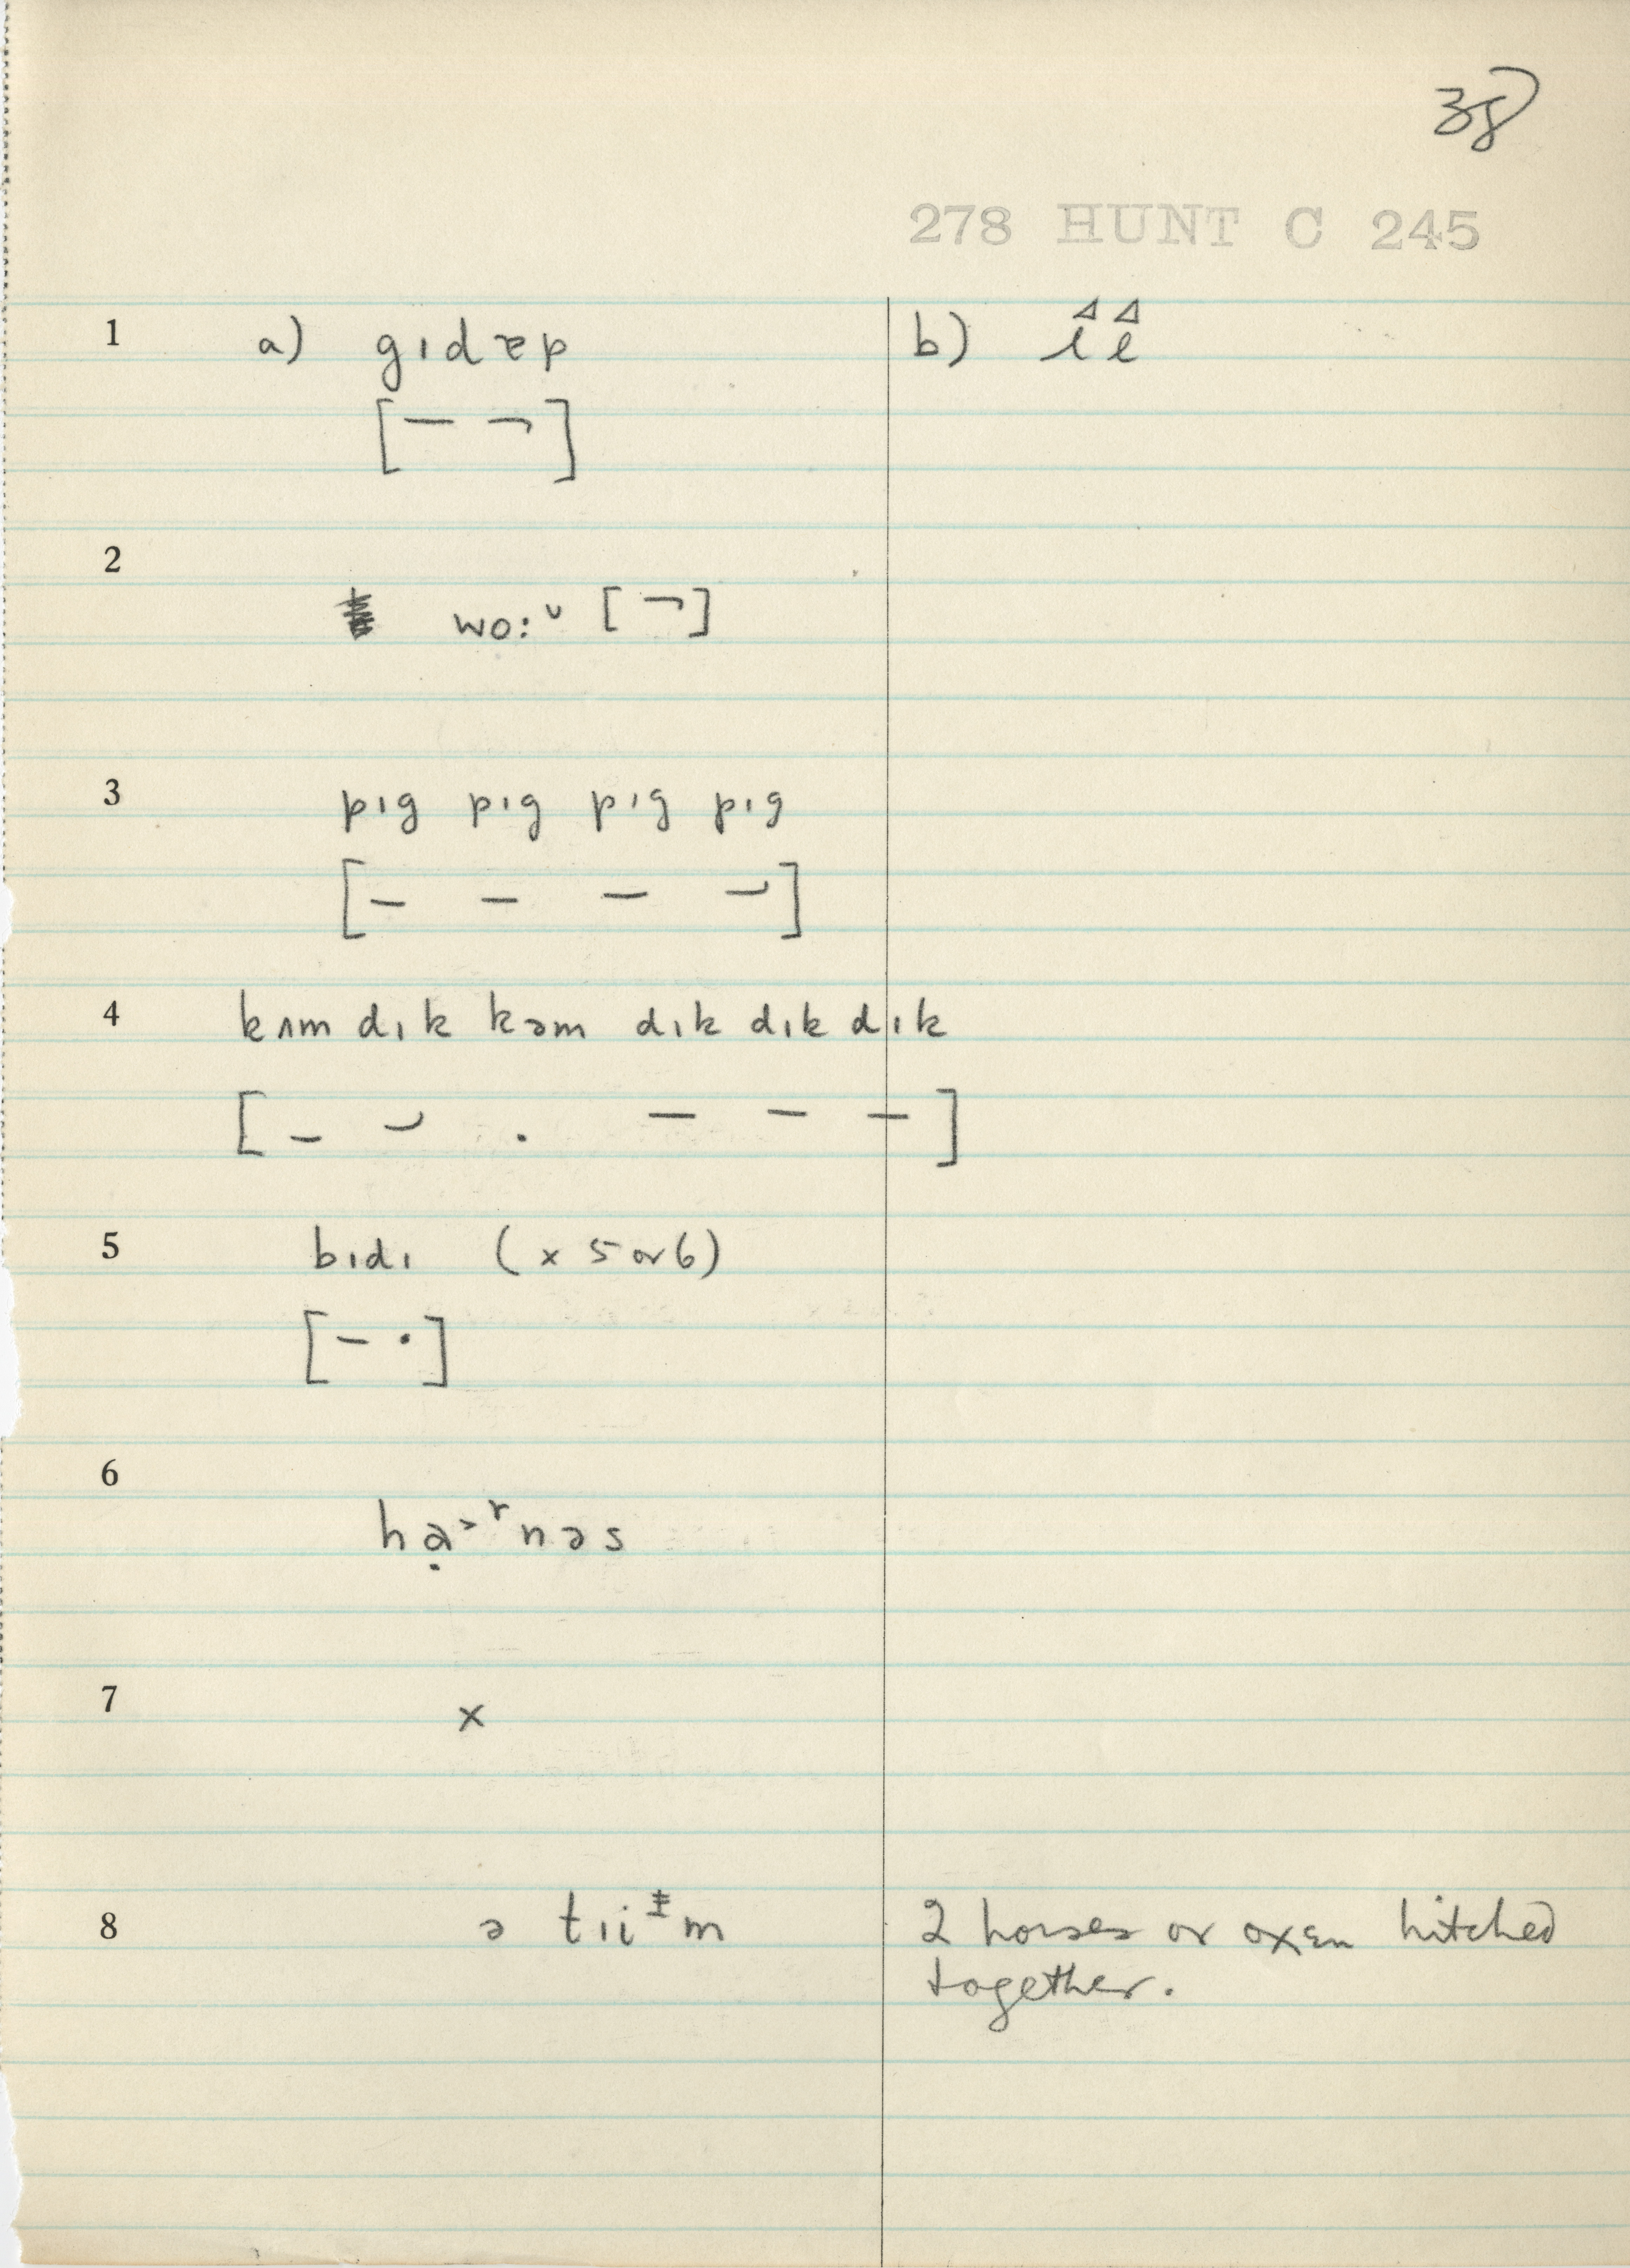 38
278 HUNT C 245
1 a) gıdæp b)
[– ¬]
2 wo:ᵛ [¬]
3 pıg pıg pıg pıg
[– – – –]
4 kʌm dık kəm dık dık dık
[– – . – – –]
5 bıdı (x 5 or 6)
[– ·]
6 hạ>ʳnəs
7 x
8 ə tıi m 2 horses or oxen hitched
together.